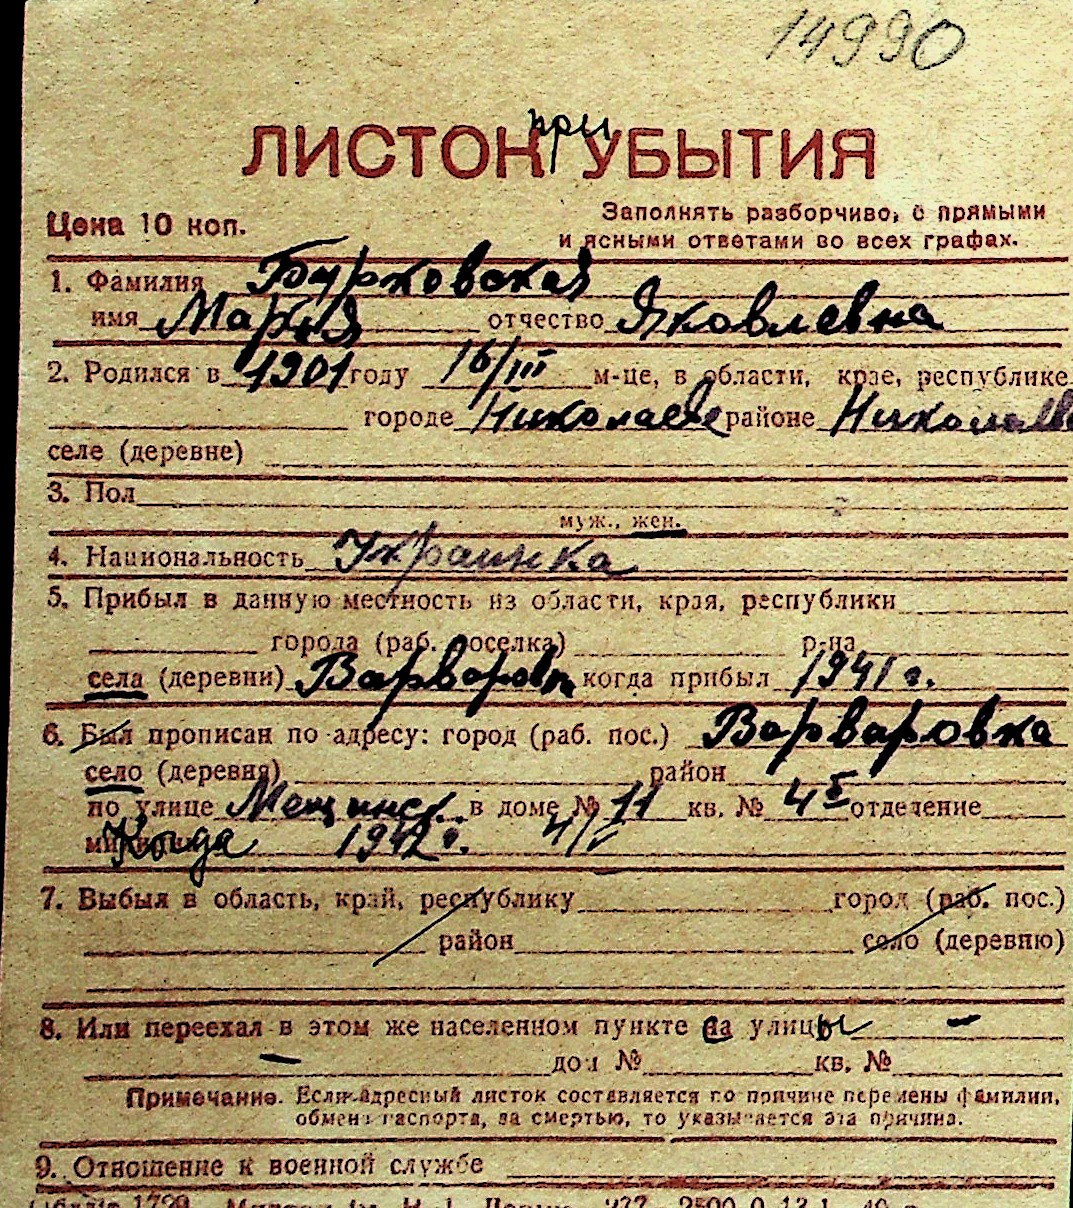 14990
ЛИСТОК приУБЫТИЯ
Цена 10 коп.
Заполнять разборчиво, с прямыми
и ясными ответами во всех графах.
1. Фамилия Бурковская
имя Мария отчество Яковлевна
2. Родился в 1901 году 16/III м-це, в области, крае, республике
городе Николаеве районе Николаев
селе (деревне)
3. Пол
муж., жен.
4. Национальность Украинка
5. Прибыл в данную местность из области, края, республики
города (раб. поселка) р-на
села (деревни) Варваровк когда прибыл 1941 г.
6. Был прописан по адресу: город (раб. пос.) Варваровка
село (деревня) район
по улице в доме № 11 кв. № отделение
Когда 1942 г. 4/V
7. Выбыл в область, край, республику город (раб. пос.)
район село (деревню)
8. Или переехал в этом же населенном пункте на улицы -
- дом № кв. №
Примечание. Если адресный листок составляется по причине перемены фамилии,
обмена паспорта, за смертью, то указывается эта причина.
9. Отношение к военной службе